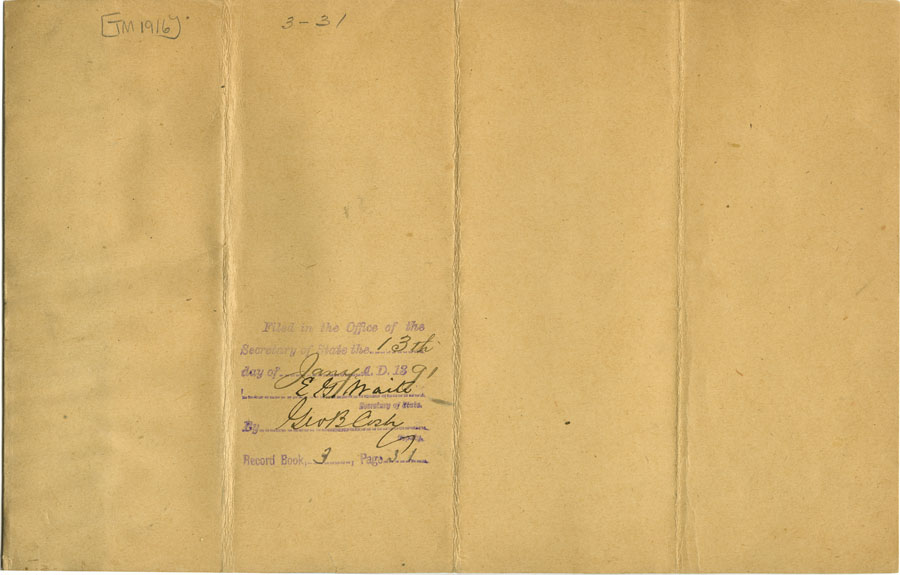 [TM 1916]
3-31
Filed in the Office of the
Secretary of State the 13th
day of Jany A. D. 1891
E G Waite
Secretary of State.
By Geo B Cosby
Record Book, 3, Page 31